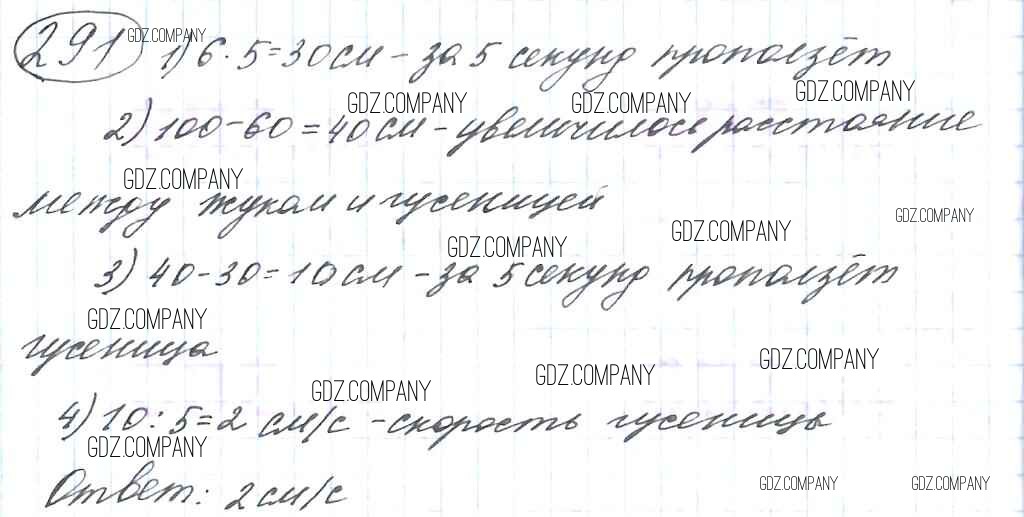 291 GDZ.COMPANY 1) 6·5=30см – за 5 секунд проползёт
GDZ.COMPANY GDZ.COMPANY GDZ.COMPANY
2) 100-60=40см – увеличилось расстояние
GDZ.COMPANY
между жуком и гусеницей GDZ.COMPANY
GDZ.COMPANY GDZ.COMPANY
3) 40-30=10см – за 5 секунд проползёт
GDZ.COMPANY
гусеница
GDZ.COMPANY GDZ.COMPANY GDZ.COMPANY
4) 10:5=2 см/с – скорость гусеницы
GDZ.COMPANY
Ответ: 2см/с GDZ.COMPANY GDZ.COMPANY